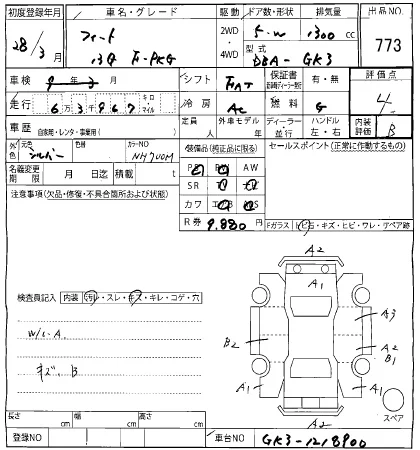 初度登録年月 車名・グレード 駆動 ドア数・形状 排気量 出品NO
28/3月 フィット 13G F-PKG 2WD・4WD 5-W 1300cc 773
型式 DBA-GK3
車検 年 月 シフト FAT 保証書 有・無 評価点
走行 6万3千967 キロ・マイル 冷房 AC 燃料 G 4
車歴 自家用・レンタ・事業用( ) 定員 人 外車モデル 年 ディーラー・並行 ハンドル 左・右 内装評価 B
外色 元色 シルバー 色替 カラーNO NH700M 装備品(純正品に限る) セールスポイント(正常に作動するもの)
名義変更期限 月 日迄 積載 t PS PW AW
注意事項(欠品・修復・不具合箇所および状態) SR
カワ
R券 9.880円 Fガラス(ヒ石・キズ・ヒビ・ワレ・リペア跡
A2
A1
検査員記入 内装(汚レ・スレ・キズ・キレ・コゲ・穴 A3
W/L A B2 A2
B1
キズ、B A1 A1
A2 スペア
長さ cm 幅 cm 高さ cm
登録NO 車台NO GK3-1218900